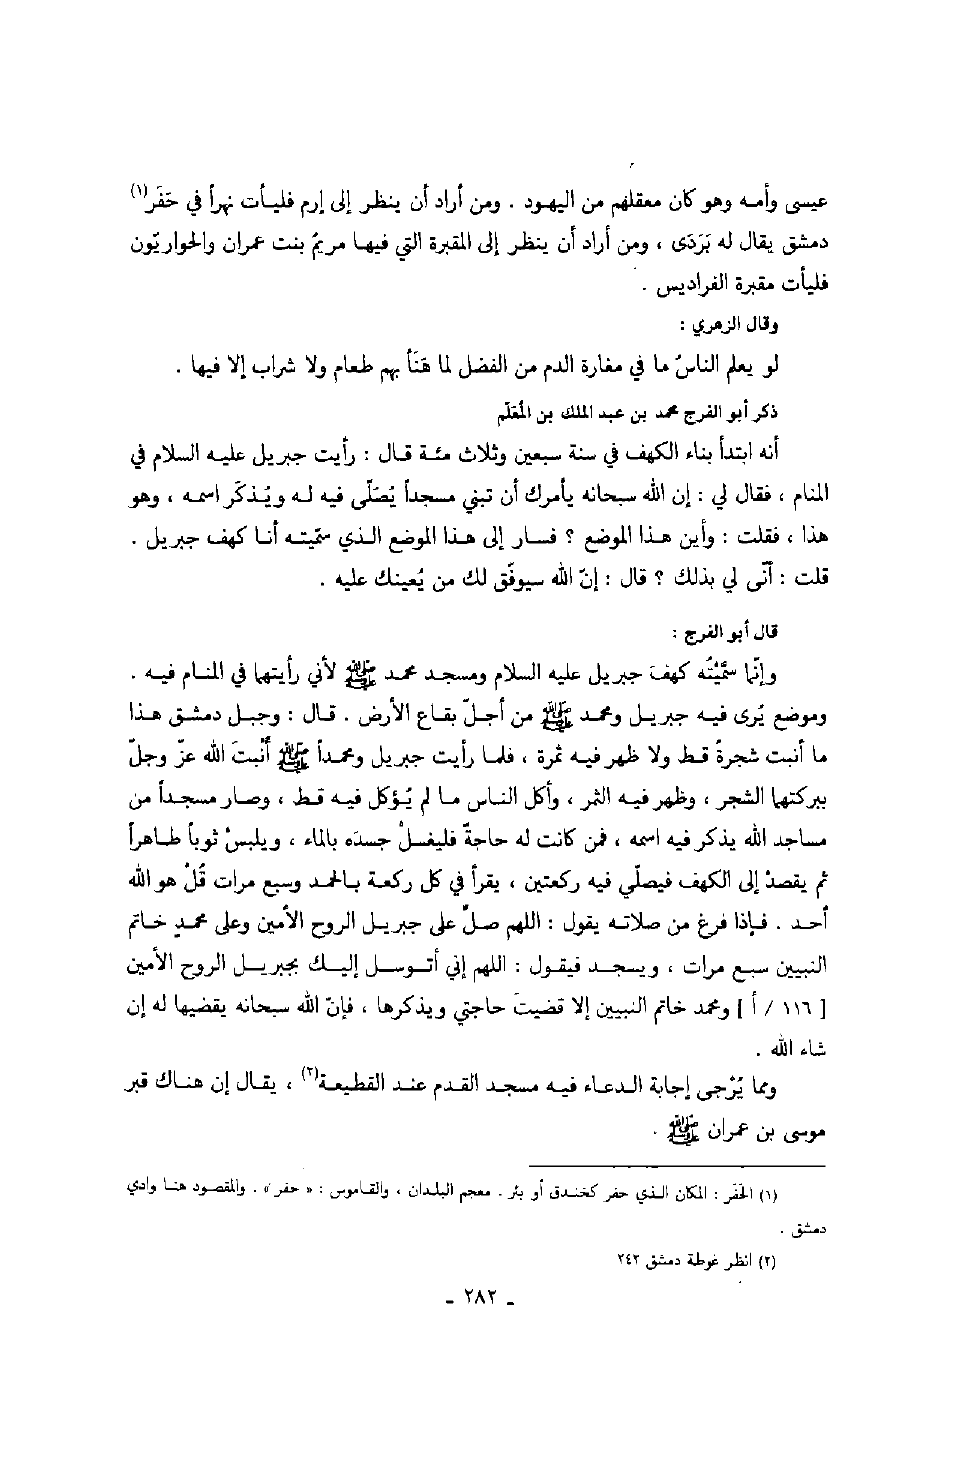 عيسى وأمه وهو كان معقلهم من اليهود . ومن أراد أن ينظر إلى إرم فليأت نهراً في حَفَر(١)
دمشق يقال له بَرَدَى ، ومن أراد أن ينظر إلى المقبرة التي فيها مريمُ بنت عمران والحواريّون
فليأت مقبرة الفراديس .
وقال الزهري :
لو يعلم الناسُ ما في مغارة الدم من الفضل لما هَنَأ بهم طعام ولا شراب إلا فيها .
ذكر أبو الفرج محمد بن عبد الملك بن المُعَلّم
أنه ابتدأ بناء الكهف في سنة سبعين وثلاث مئة قال : رأيت جبريل عليه السلام في
المنام ، فقال لي : إن الله سبحانه يأمرك أن تبني مسجداً يُصَلّى فيه له ويُذكَر اسمه ، وهو
هذا ، فقلت : وأين هذا الموضع ؟ فسار إلى هذا الموضع الذي سمّيته أنا كهف جبريل .
قلت : أنّى لي بذلك ؟ قال : إنّ الله سيوفّق لك من يُعينك عليه .
قال أبو الفرج :
وإنّما سمَّيْتُه كهفَ جبريل عليه السلام ومسجد محمد ﷺ لأني رأيتها في المنام فيه .
وموضع يُرى فيه جبريل ومحمد ﷺ من أجلّ بقاع الأرض . قال : وجبل دمشق هذا
ما أنبت شجرةً قط ولا ظهر فيه ثمرة ، فلما رأيت جبريل ومحمداً ﷺ أَنْبتَ الله عزّ وجلّ
ببركتها الشجر ، وظهر فيه الثمر ، وأكل الناس ما لم يُؤكل فيه قط ، وصار مسجداً من
مساجد الله يذكر فيه اسمه ، فمن كانت له حاجةٌ فليغسلْ جسدَه بالماء ، ويلبسْ ثوباً طاهراً
ثم يقصدْ إلى الكهف فيصلّي فيه ركعتين ، يقرأ في كل ركعة بالحمد وسبع مرات قُلْ هو الله
أحد . فإذا فرغ من صلاته يقول : اللهم صلِّ على جبريل الروح الأمين وعلى محمدٍ خاتم
النبيين سبع مرات ، ويسجد فيقول : اللهم إني أتوسل إليك بجبريل الروح الأمين
[ ١١٦ / أ ] ومحمد خاتم النبيين إلا قضيتَ حاجتي ويذكرها ، فإنّ الله سبحانه يقضيها له إن
شاء الله .
ومما يُرْجى إجابة الدعاء فيه مسجد القدم عند القطيعة(٢) ، يقال إن هناك قبر
موسى بن عمران ﷺ .
(١) الحَفَر : المكان الذي حفر كخندق أو بئر . معجم البلدان ، والقاموس : « حفر » . والمقصود هنا وادي
دمشق .
(٢) انظر غوطة دمشق ٢٤٢
- ٢٨٢ -